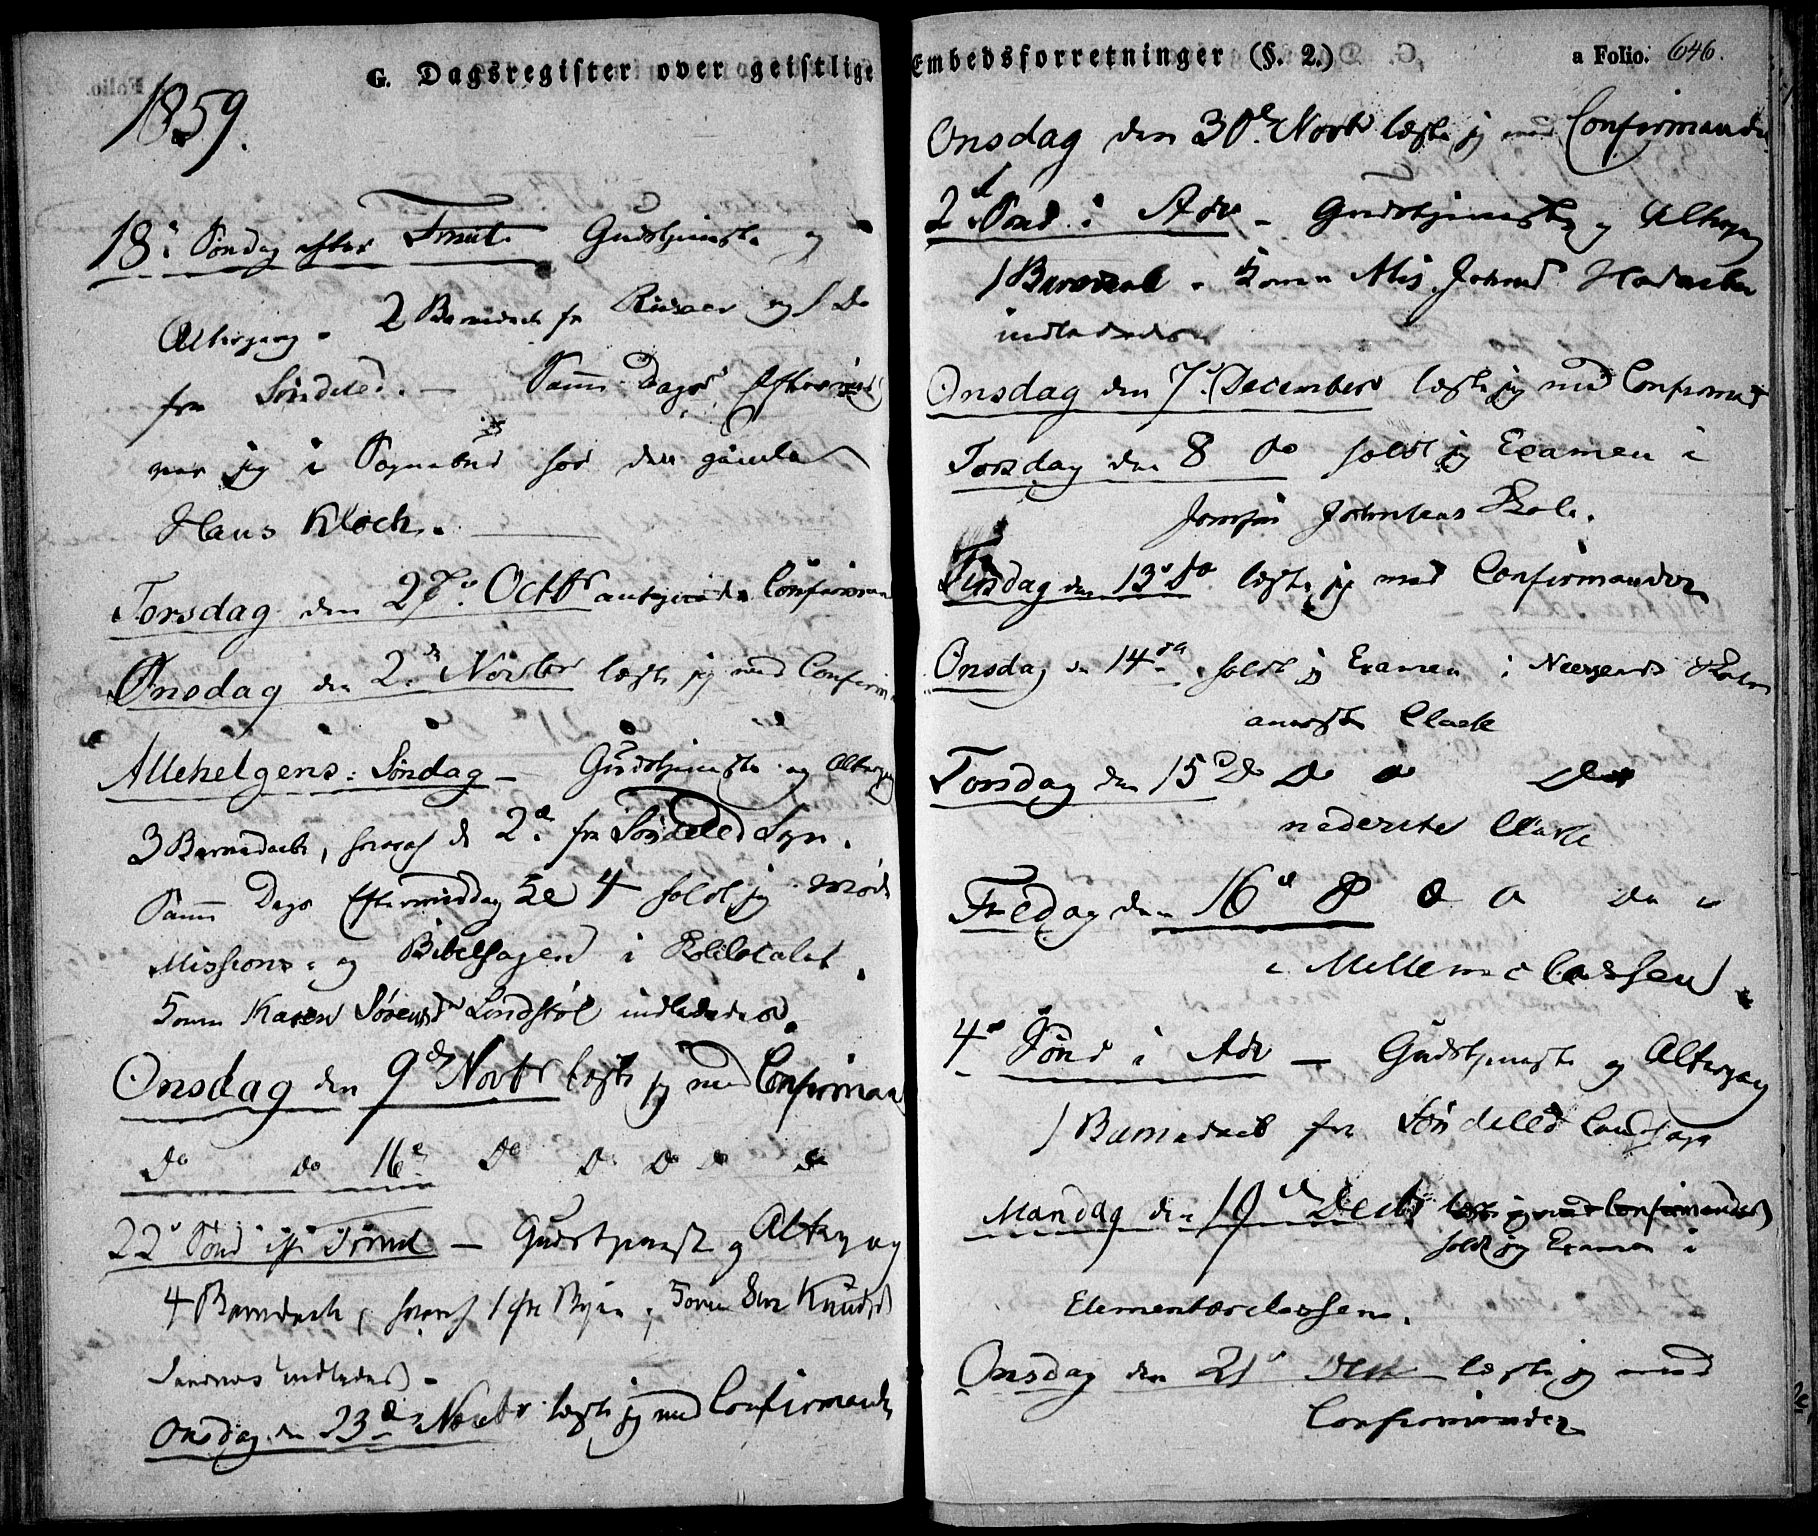 G. Dagsregister over geistlige
1859.
18de Søndag efter Trinit. Gudstjeneste og
Altergang - 2 Barnedaab fra Riisøer og 1 Do
fra Søndeled. — Samme Dags Eftermid
var jeg i Sognebud hos den gamle
Hans Kloch.
Torsdag den 27de Octbr antegnede Confirman
Onsdag den 2den Novbr læste jeg med Confirm
Allehelgens Søndag — Gudstjeneste og Altergang
3 Barnedaab, hvoraf de 2de fra Søndeled Sogn.
Samme Dags Eftermiddag Kl 4 holdt jeg Møde
Missions- og Bibelsagen i Skolelocalet.
Konen Karen Sørensdr Lindstøl indlededes.
Onsdag den 9de Novbr læste jeg med Confirman
Do Do 16de Do Do Do Do Do
22de Sønd eft Trinit — Gudstjeneste og Altergang
4 Barnedaab, hvoraf 1 fra Byen, Konen Knuds
indledes -
Onsdag den 23de Novbr læste jeg med Confirmande
Embedsforretninger (§. 2.) a Folio. 646.
Onsdag den 30te Novbr læste jeg med Confirmander
2d Sønd i Adv - Gudstjeneste og Altergang
1 Barnedaab - Konen
indlededes
Onsdag den 7de December læste jeg med Confirmand
Torsdag den 8 Do holdt jeg Examen i
Jomfru Skole.
Tirsdag den 13de Do læste jeg med Confirmander
Onsdag den 14de holdt jeg Examen i Skole
øverste Classe
Torsdag den 15de Do Do Do Do
nederste Classe
Fredag den 16de Do Do Do
i Mellemclassen
4de Sønd i Adv — Gudstjeneste og Altergang
1 Barnedaab fra Søndeled Landsogn
Mandag den 19de Decbr læste jeg med Confirmander
holdt jeg Examen i
Elementærclassen.
Onsdag den 21de læste jeg med
Confirmander